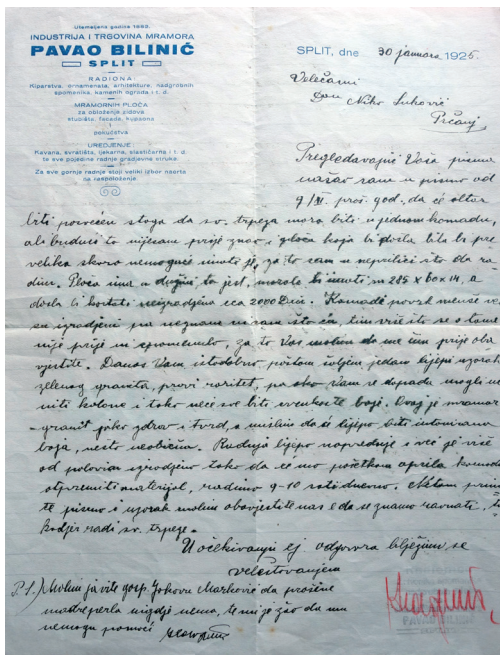 Utemeljena godine 1893.
INDUSTRIJA I TRGOVINA MRAMORA
PAVAO BILINIĆ
SPLIT
RADIONA:
Kiparstva, ornamenata, arhitekture, nadgrobnih
spomenika, kamenih ograda i t. d.
MRAMORNIH PLOČA
za obloženje zidova
stubišta, fasada, kupaona
i
pokućstva
UREDJENJE:
Kavana, svratišta, ljekarna, slastičarna i t. d.
te sve pojedine radnje gradjevne struke.
Za sve gornje radnje stoji veliki izbor nacrta
na raspoloženje.
SPLIT, dne 30 januara 1925.
Velečasni
Don Niko Luković
Prčanj
Pregledavajuć Vaša pisma
našao sam u pismo od
9/XI. proš. god. da će oltar
biti posvećen stoga da sv. trpeza mora biti u jednom komadu,
ali budući to nijesam prije znao i ploča koja bi došla bila bi pre
velika skoro nemoguće imati je, za to sam u neprilici što da ra
dim. Ploča ima u dužini to jest, morala bi imati m 285 x 60 x 14, a
došla bi koštati neizradjena cca 2000 Din. Komadi površ menze već
su izradjeni pa neznam nisam što ću, tim više što se o tome
nije prije ni spomenulo, za to Vas molim da me čim prije oba
vjestite. Danas Vam istodobno poštom šaljem jedan lijepi uzorak
zelenog granita, pravi raritet, pa ako Vam se dopada mogli
niti kolone i tako neće sve biti svenkoste boje. Ovaj je mramor
-granit jako zdrav i tvrd, a mislim da će lijepo biti intonirana
boja, nešto neobična. Radnja lijepo napreduje i već je više
od polovice izradjeno tako da ćemo početkom aprila
otpremiti materijal, radimo 9-10 sati dnevno. Čim
te pismo i uzorak molim obavijestite nas e da se znamo ravnati,
kodjer radi sv. trpeze.
U očekivanju cj. odgovora bilježim se
veleštovanjem
P.S.) Molim javite gosp. Jakovu Markoviću da prošene
madreperla nigdje nema, te mi je žao da mu
nemogu pomoći